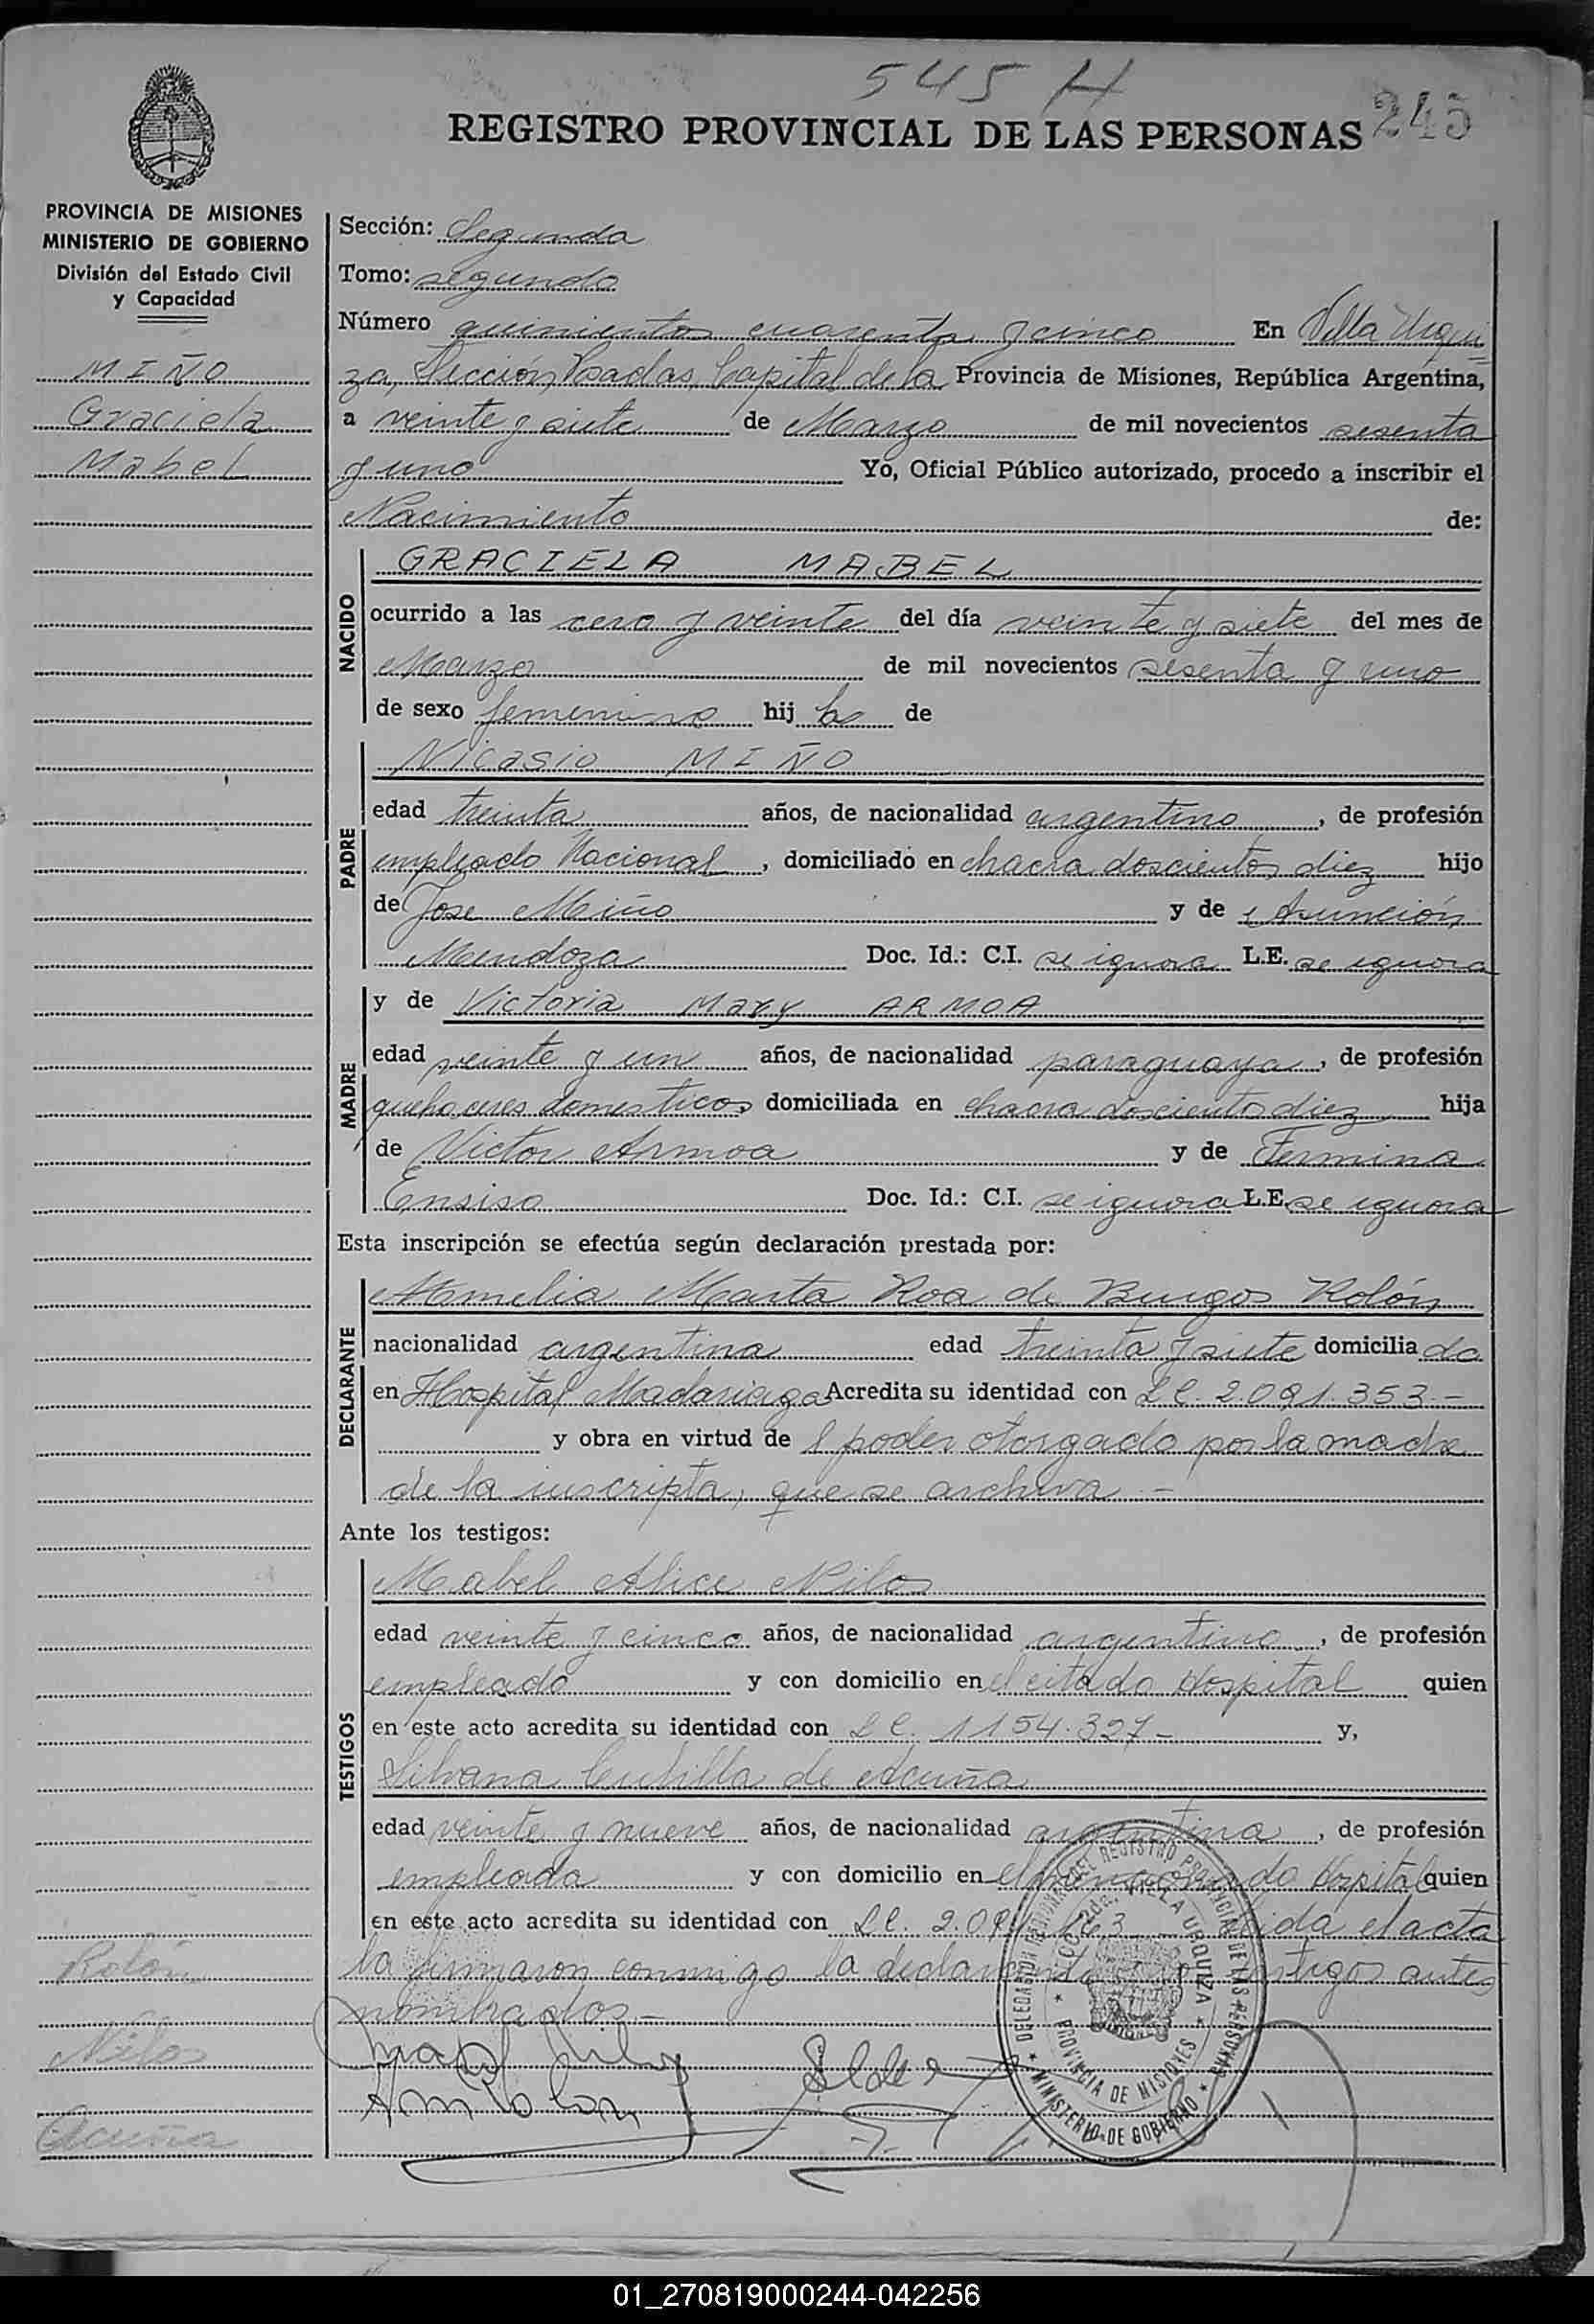 545 H
245
REGISTRO PROVINCIAL DE LAS PERSONAS
PROVINCIA DE MISIONES
MINISTERIO DE GOBIERNO
División del Estado Civil
y Capacidad
MIÑO
Graciela
Mabel
Sección: Segunda
Tomo: segundo
Número quinientos cuarenta y cinco En Villa Urqui
za, Sección Posadas, Capital de la Provincia de Misiones, República Argentina,
a veinte y siete de Marzo de mil novecientos sesenta
y uno Yo, Oficial Público autorizado, procedo a inscribir el
Nacimiento de:
NACIDO
GRACIELA MABEL
ocurrido a las cero y veinte del día veinte y siete del mes de
Marzo de mil novecientos sesenta y uno
de sexo femenino hij la de
PADRE
Nicasio MIÑO
edad treinta años, de nacionalidad argentino, de profesión
empleado Nacional, domiciliado en chacra doscientos diez hijo
de Jose Miño y de Asunción
Mendoza Doc. Id.: C.I. se ignora L.E. se ignora
MADRE
y de Victoria Mary ARMOA
edad veinte y un años, de nacionalidad paraguaya, de profesión
quehaceres domesticos domiciliada en chacra doscientos diez hija
de Victor Armoa y de Fermina
Ensiso Doc. Id.: C.I. se ignora L.E. se ignora
Esta inscripción se efectúa según declaración prestada por:
DECLARANTE
Amelia Marta Roa de Burgos Rolón
nacionalidad argentina edad treinta y siete domicilia da
en Hospital Madariaga Acredita su identidad con L.C. 2.091.353.-
y obra en virtud de l poder otorgado por la madre
de la inscripta, que se archiva.-
Ante los testigos:
TESTIGOS
Mabel Alice Nilos
edad veinte y cinco años, de nacionalidad argentina, de profesión
empleado y con domicilio en el citado Hospital quien
en este acto acredita su identidad con L.C. 1154.327- y,
Silvana Cubilla de Acuña
edad veinte y nueve años, de nacionalidad argentina, de profesión
empleada y con domicilio en el mencionado Hospital quien
en este acto acredita su identidad con L.C. 2.09 163 leida el acta
la firmaron conmigo la declarante testigos antes
nombrados.-
Rolón
Nilos
Acuña
DELEGACION REGIONAL DEL REGISTRO PROVINCIAL DE LAS PERSONAS
VILLA URQUIZA
PROVINCIA DE MISIONES
MINISTERIO DE GOBIERNO
01_270819000244-042256